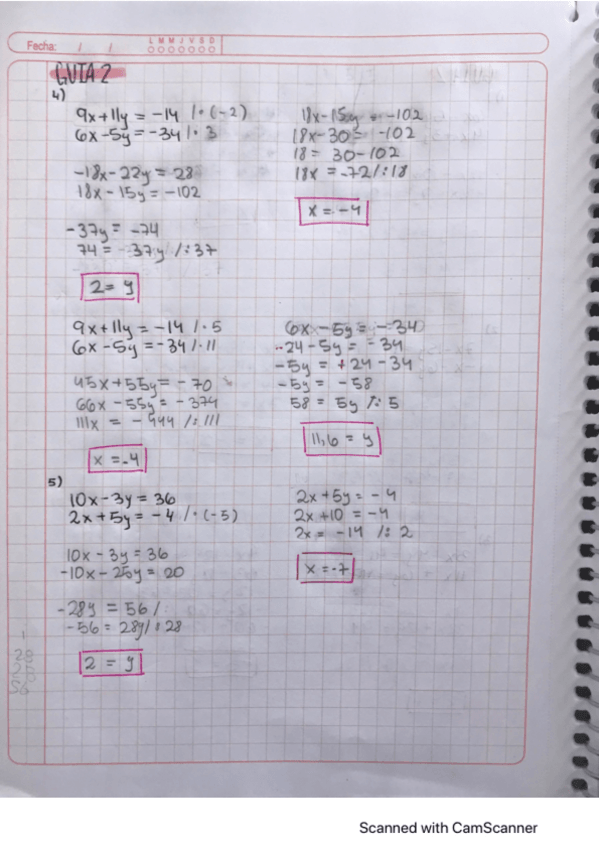 Fecha: / /
L M M J V S D
GUIA 2
4)
9x+11y = -14 /·(-2)
6x-5y = -34 /·3
-18x-22y = 28
18x-15y = -102
-37y = -74
74 = 37y /:37
2 = y
18x-15y = -102
18x-30 = -102
18 = 30-102
18x = -72/:18
x = -4
9x+11y = -14 /·5
6x-5y = -34 /·11
45x+55y = -70
66x-55y = -374
111x = -444 /:111
x = -4
6x-5y = -34
-24-5y = -34
-5y = +24-34
-5y = -58
58 = 5y /: 5
11,6 = y
5)
10x-3y = 36
2x+5y = -4 /·(-5)
10x-3y = 36
-10x-25y = 20
-28y = 56 /
-56 = 28y/:28
2 = y
2x+5y = -4
2x+10 = -4
2x = -14 /: 2
x = -7
Scanned with CamScanner